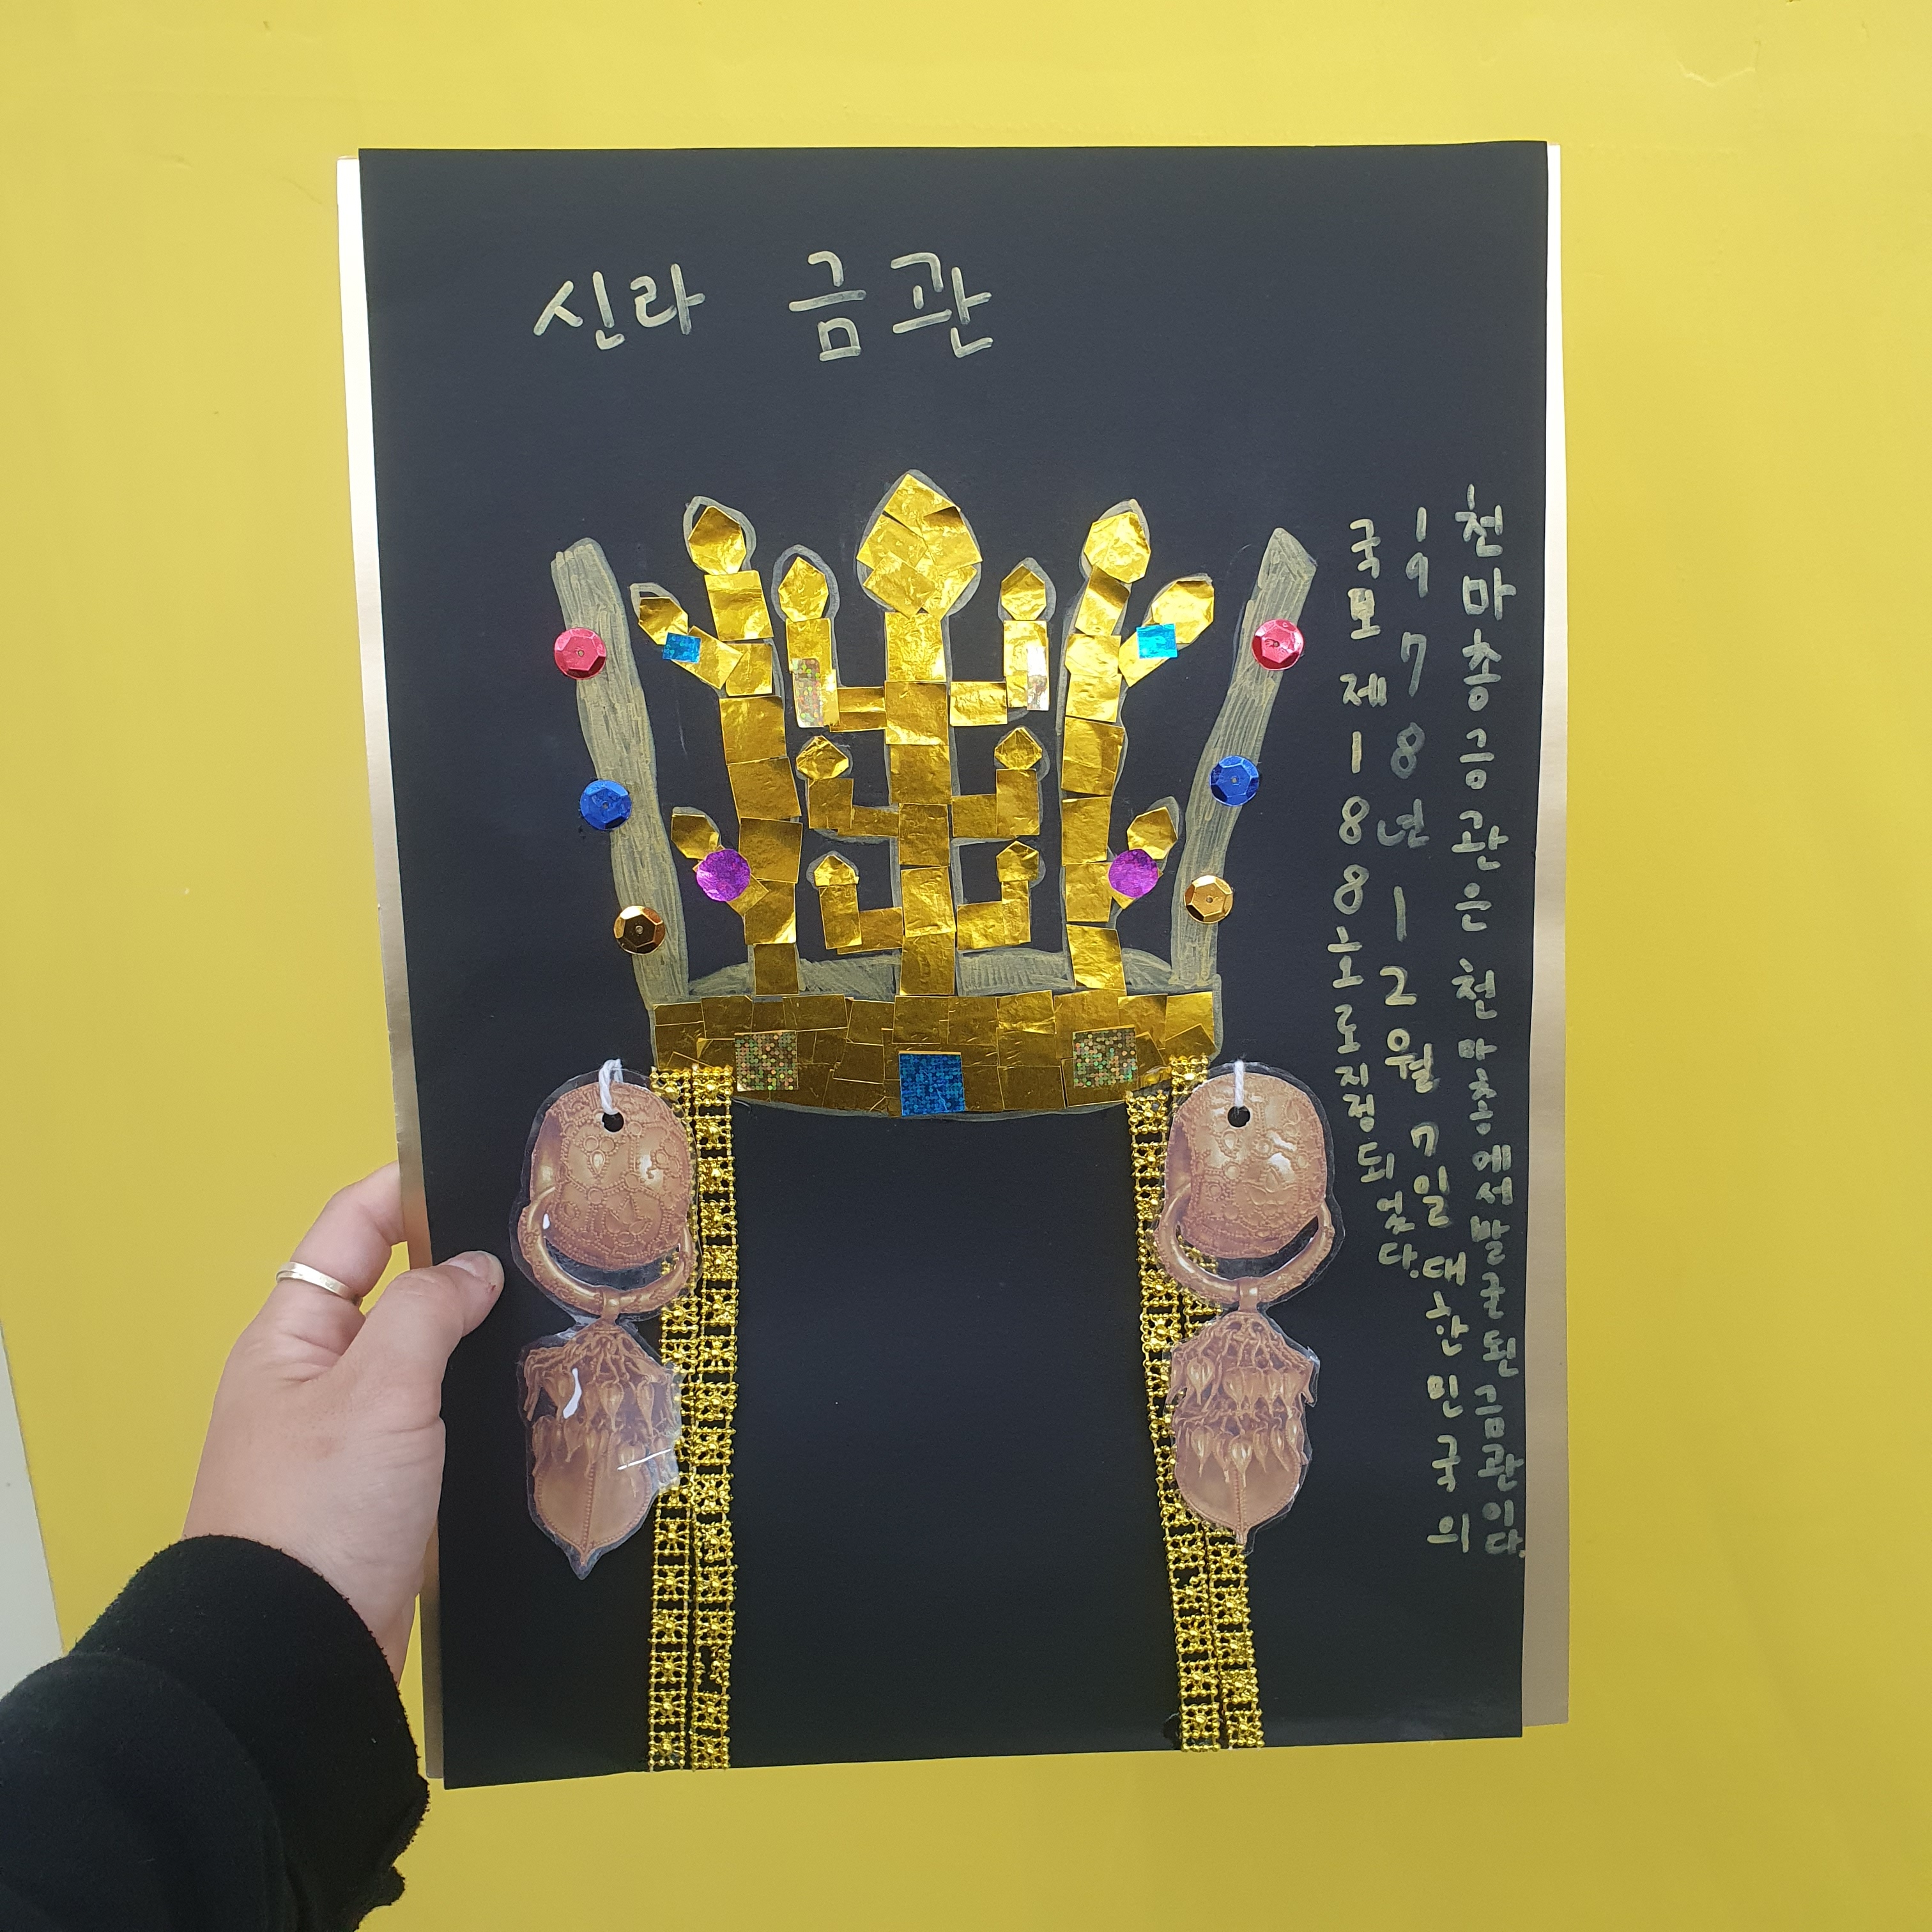 신라 금관
천마총금관은 천마총에서발굴된 금관이다.
1978년 12월 7일 대한민국의
국보 제188호로지정되었다.